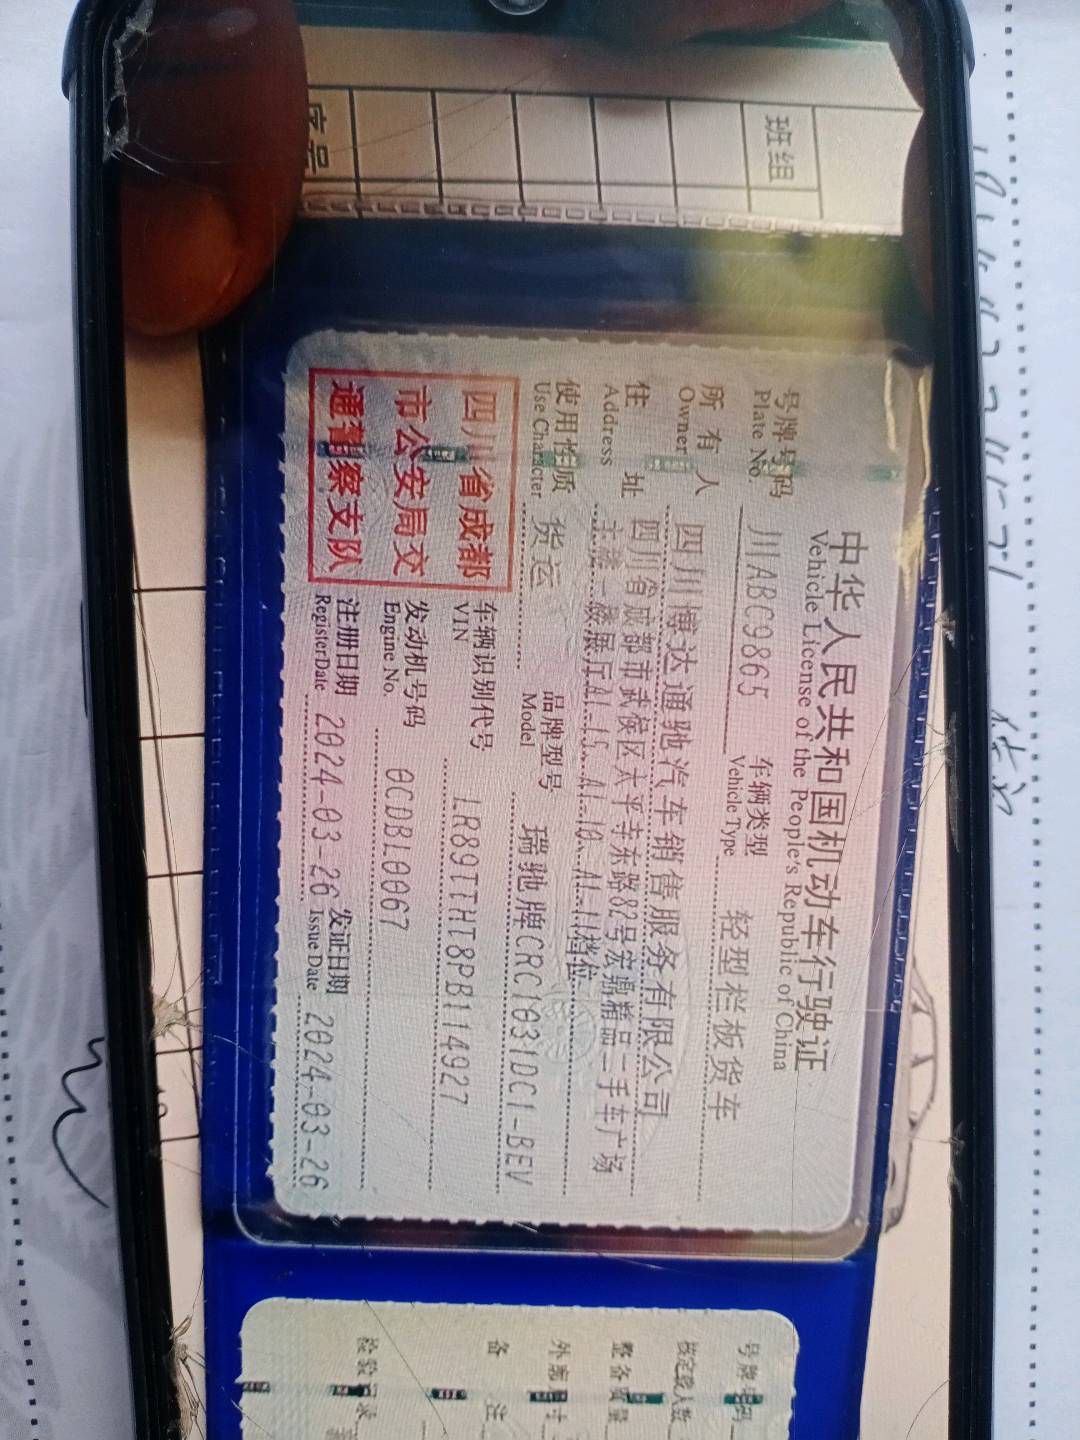 班组
序号
中华人民共和国机动车行驶证
Vehicle License of the People's Republic of China
号牌号码 川ABC9865 车辆类型 轻型栏板货车
Plate No. Vehicle Type
所有人 四川博达通驰汽车销售服务有限公司
Owner
住址 四川省成都市武侯区太平寺东路82号宏鼎精品二手车广场
Address 主楼一楼展厅A1-15、A1-10、A1-11档位
使用性质 货运 品牌型号 瑞驰牌CRC1031DC1-BEV
Use Character Model
四川省成都
市公安局交
通警察支队
车辆识别代号 LR89TTHT8PB114927
VIN
发动机号码 0CDBL0067
Engine No.
注册日期 2024-03-26 发证日期 2024-03-26
Register Date Issue Date
号牌号码
核定载人数
整备质量
外廓尺寸
备注
检验记录